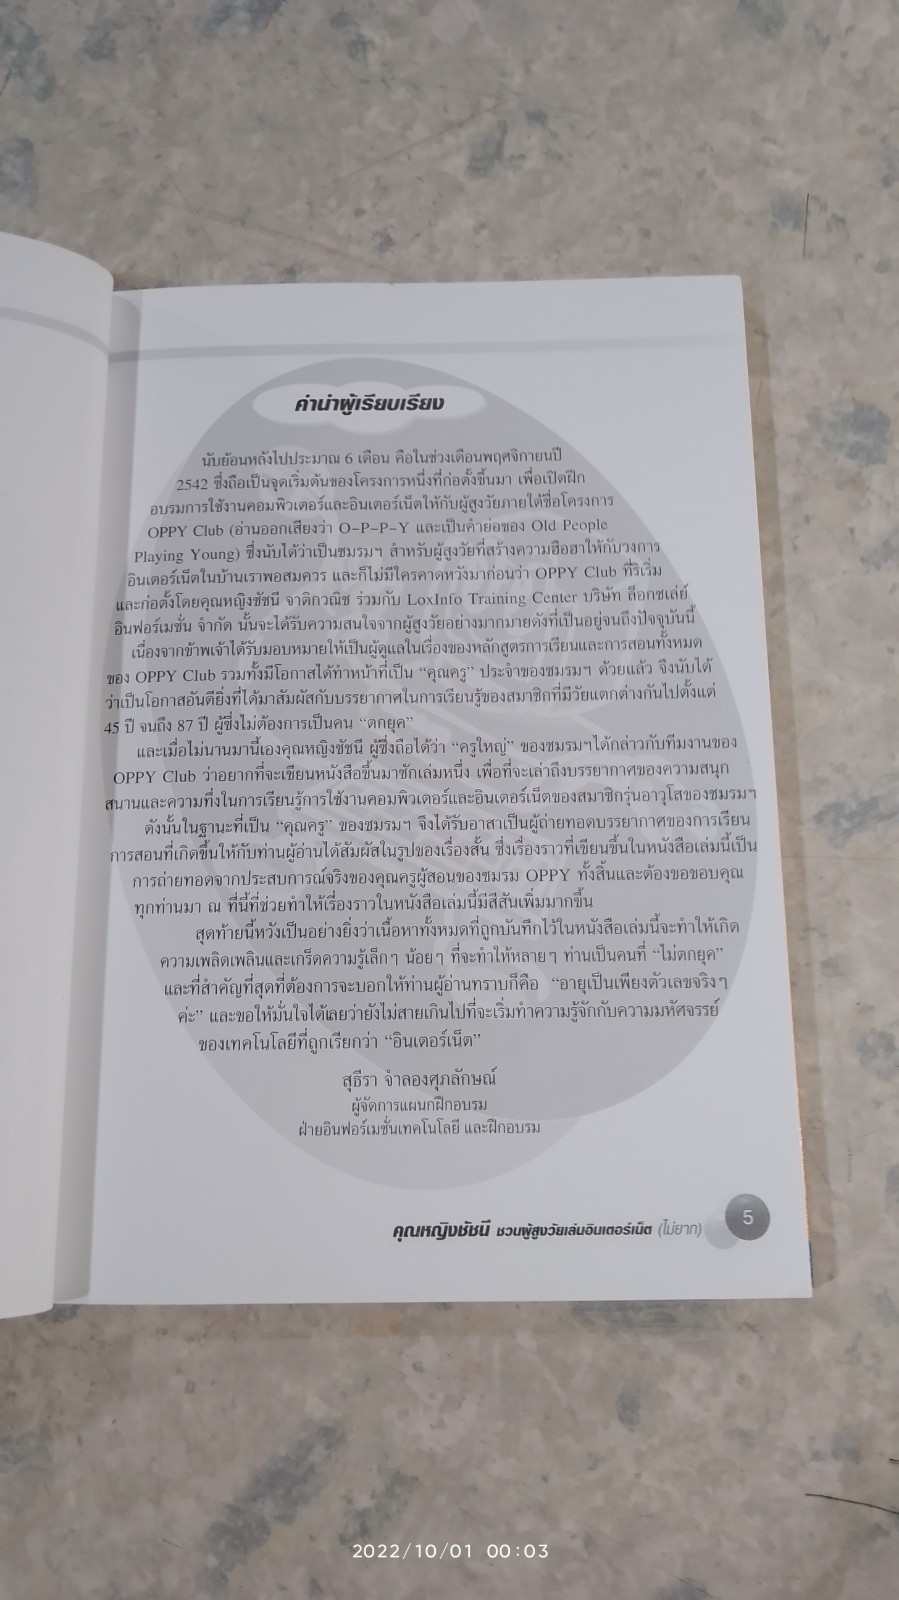 คำนำผู้เรียบเรียง
นับย้อนหลังไปประมาณ 6 เดือน คือในช่วงเดือนพฤศจิกายนปี
2542 ซึ่งถือเป็นจุดเริ่มต้นของโครงการหนึ่งที่ก่อตั้งขึ้นมา เพื่อเปิดฝึก
อบรมการใช้งานคอมพิวเตอร์และอินเตอร์เน็ตให้กับผู้สูงวัยภายใต้ชื่อโครงการ
OPPY Club (อ่านออกเสียงว่า O-P-P-Y และเป็นคำย่อของ Old People
Playing Young) ซึ่งนับได้ว่าเป็นชมรมฯ สำหรับผู้สูงวัยที่สร้างความฮือฮาให้กับวงการ
อินเตอร์เน็ตในบ้านเราพอสมควร และก็ไม่มีใครคาดหวังมาก่อนว่า OPPY Club ที่ริเริ่ม
และก่อตั้งโดยคุณหญิงชัชนี จาติกวณิช ร่วมกับ LoxInfo Training Center บริษัท ล็อกซเล่ย์
อินฟอร์เมชั่น จำกัด นั้นจะได้รับความสนใจจากผู้สูงวัยอย่างมากมายดังที่เป็นอยู่จนถึงปัจจุบันนี้
เนื่องจากข้าพเจ้าได้รับมอบหมายให้เป็นผู้ดูแลในเรื่องของหลักสูตรการเรียนและการสอนทั้งหมด
ของ OPPY Club รวมทั้งมีโอกาสได้ทำหน้าที่เป็น “คุณครู” ประจำของชมรมฯ ด้วยแล้ว จึงนับได้
ว่าเป็นโอกาสอันดียิ่งที่ได้มาสัมผัสกับบรรยากาศในการเรียนรู้ของสมาชิกที่มีวัยแตกต่างกันไปตั้งแต่
45 ปี จนถึง 87 ปี ผู้ซึ่งไม่ต้องการเป็นคน “ตกยุค”
และเมื่อไม่นานมานี้เองคุณหญิงชัชนี ผู้ซึ่งถือได้ว่า “ครูใหญ่” ของชมรมฯได้กล่าวกับทีมงานของ
OPPY Club ว่าอยากที่จะเขียนหนังสือขึ้นมาซักเล่มหนึ่ง เพื่อที่จะเล่าถึงบรรยากาศของความสนุก
สนานและความทึ่งในการเรียนรู้การใช้งานคอมพิวเตอร์และอินเตอร์เน็ตของสมาชิกรุ่นอาวุโสของชมรมฯ
ดังนั้นในฐานะที่เป็น “คุณครู” ของชมรมฯ จึงได้รับอาสาเป็นผู้ถ่ายทอดบรรยากาศของการเรียน
การสอนที่เกิดขึ้นให้กับท่านผู้อ่านได้สัมผัสในรูปของเรื่องสั้น ซึ่งเรื่องราวที่เขียนขึ้นในหนังสือเล่มนี้เป็น
การถ่ายทอดจากประสบการณ์จริงของคุณครูผู้สอนของชมรม OPPY ทั้งสิ้นและต้องขอขอบคุณ
ทุกท่านมา ณ ที่นี้ที่ช่วยทำให้เรื่องราวในหนังสือเล่มนี้มีสีสันเพิ่มมากขึ้น
สุดท้ายนี้หวังเป็นอย่างยิ่งว่าเนื้อหาทั้งหมดที่ถูกบันทึกไว้ในหนังสือเล่มนี้จะทำให้เกิด
ความเพลิดเพลินและเกร็ดความรู้เล็กๆ น้อยๆ ที่จะทำให้หลายๆ ท่านเป็นคนที่ “ไม่ตกยุค”
และที่สำคัญที่สุดที่ต้องการจะบอกให้ท่านผู้อ่านทราบก็คือ “อายุเป็นเพียงตัวเลขจริงๆ
ค่ะ” และขอให้มั่นใจได้เลยว่ายังไม่สายเกินไปที่จะเริ่มทำความรู้จักกับความมหัศจรรย์
ของเทคโนโลยีที่ถูกเรียกว่า “อินเตอร์เน็ต”
สุธีรา จำลองศุภลักษณ์
ผู้จัดการแผนกฝึกอบรม
ฝ่ายอินฟอร์เมชั่นเทคโนโลยี และฝึกอบรม
คุณหญิงชัชนี ชวนผู้สูงวัยเล่นอินเตอร์เน็ต (ไม่ยาก) 5
2022/10/01 00:03